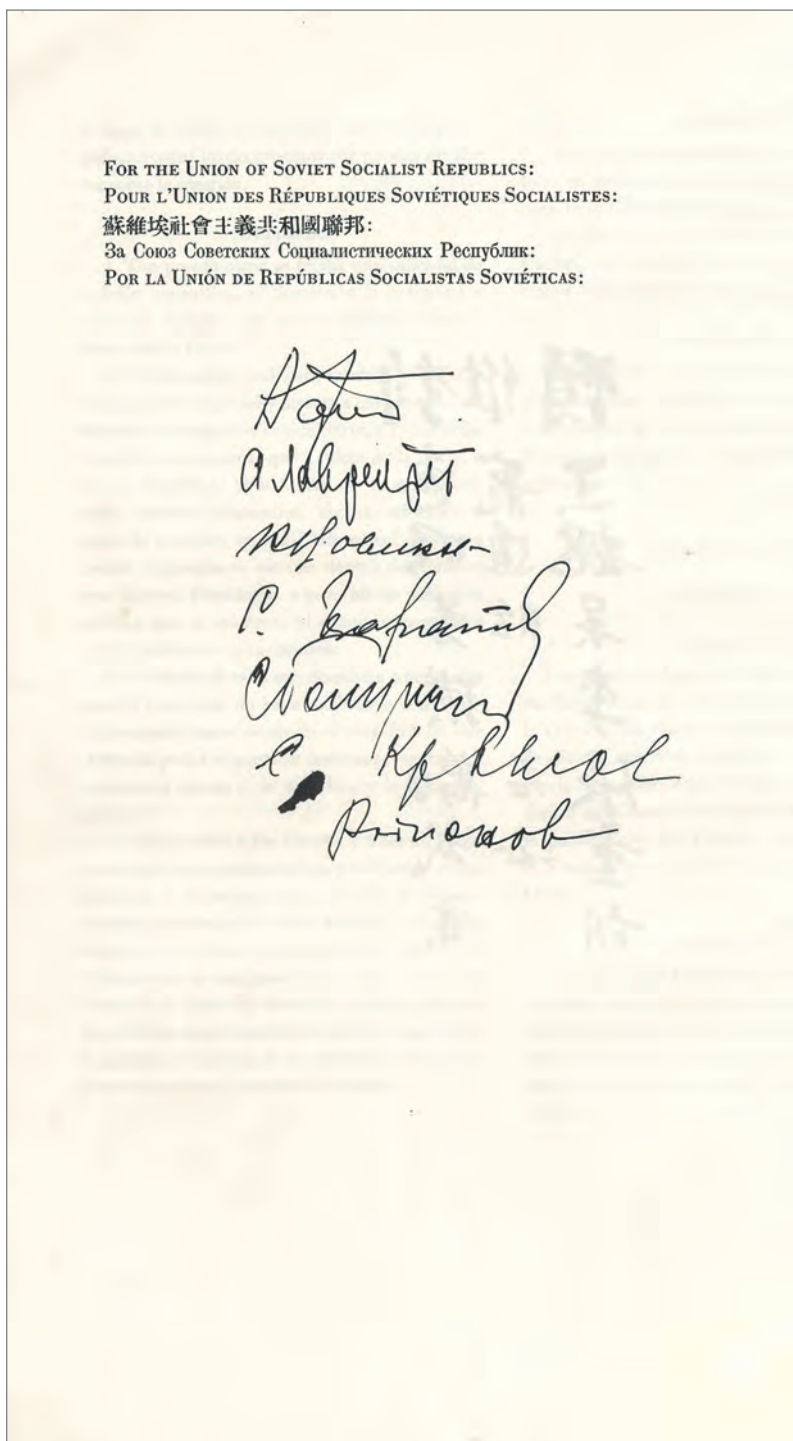 For the Union of Soviet Socialist Republics:
Pour l'Union des Républiques Soviétiques Socialistes:
蘇維埃社會主義共和國聯邦:
За Союз Советских Социалистических Республик:
Por la Unión de Repúblicas Socialistas Soviéticas:
А Лаврентьев
К Новиков
С Крылов